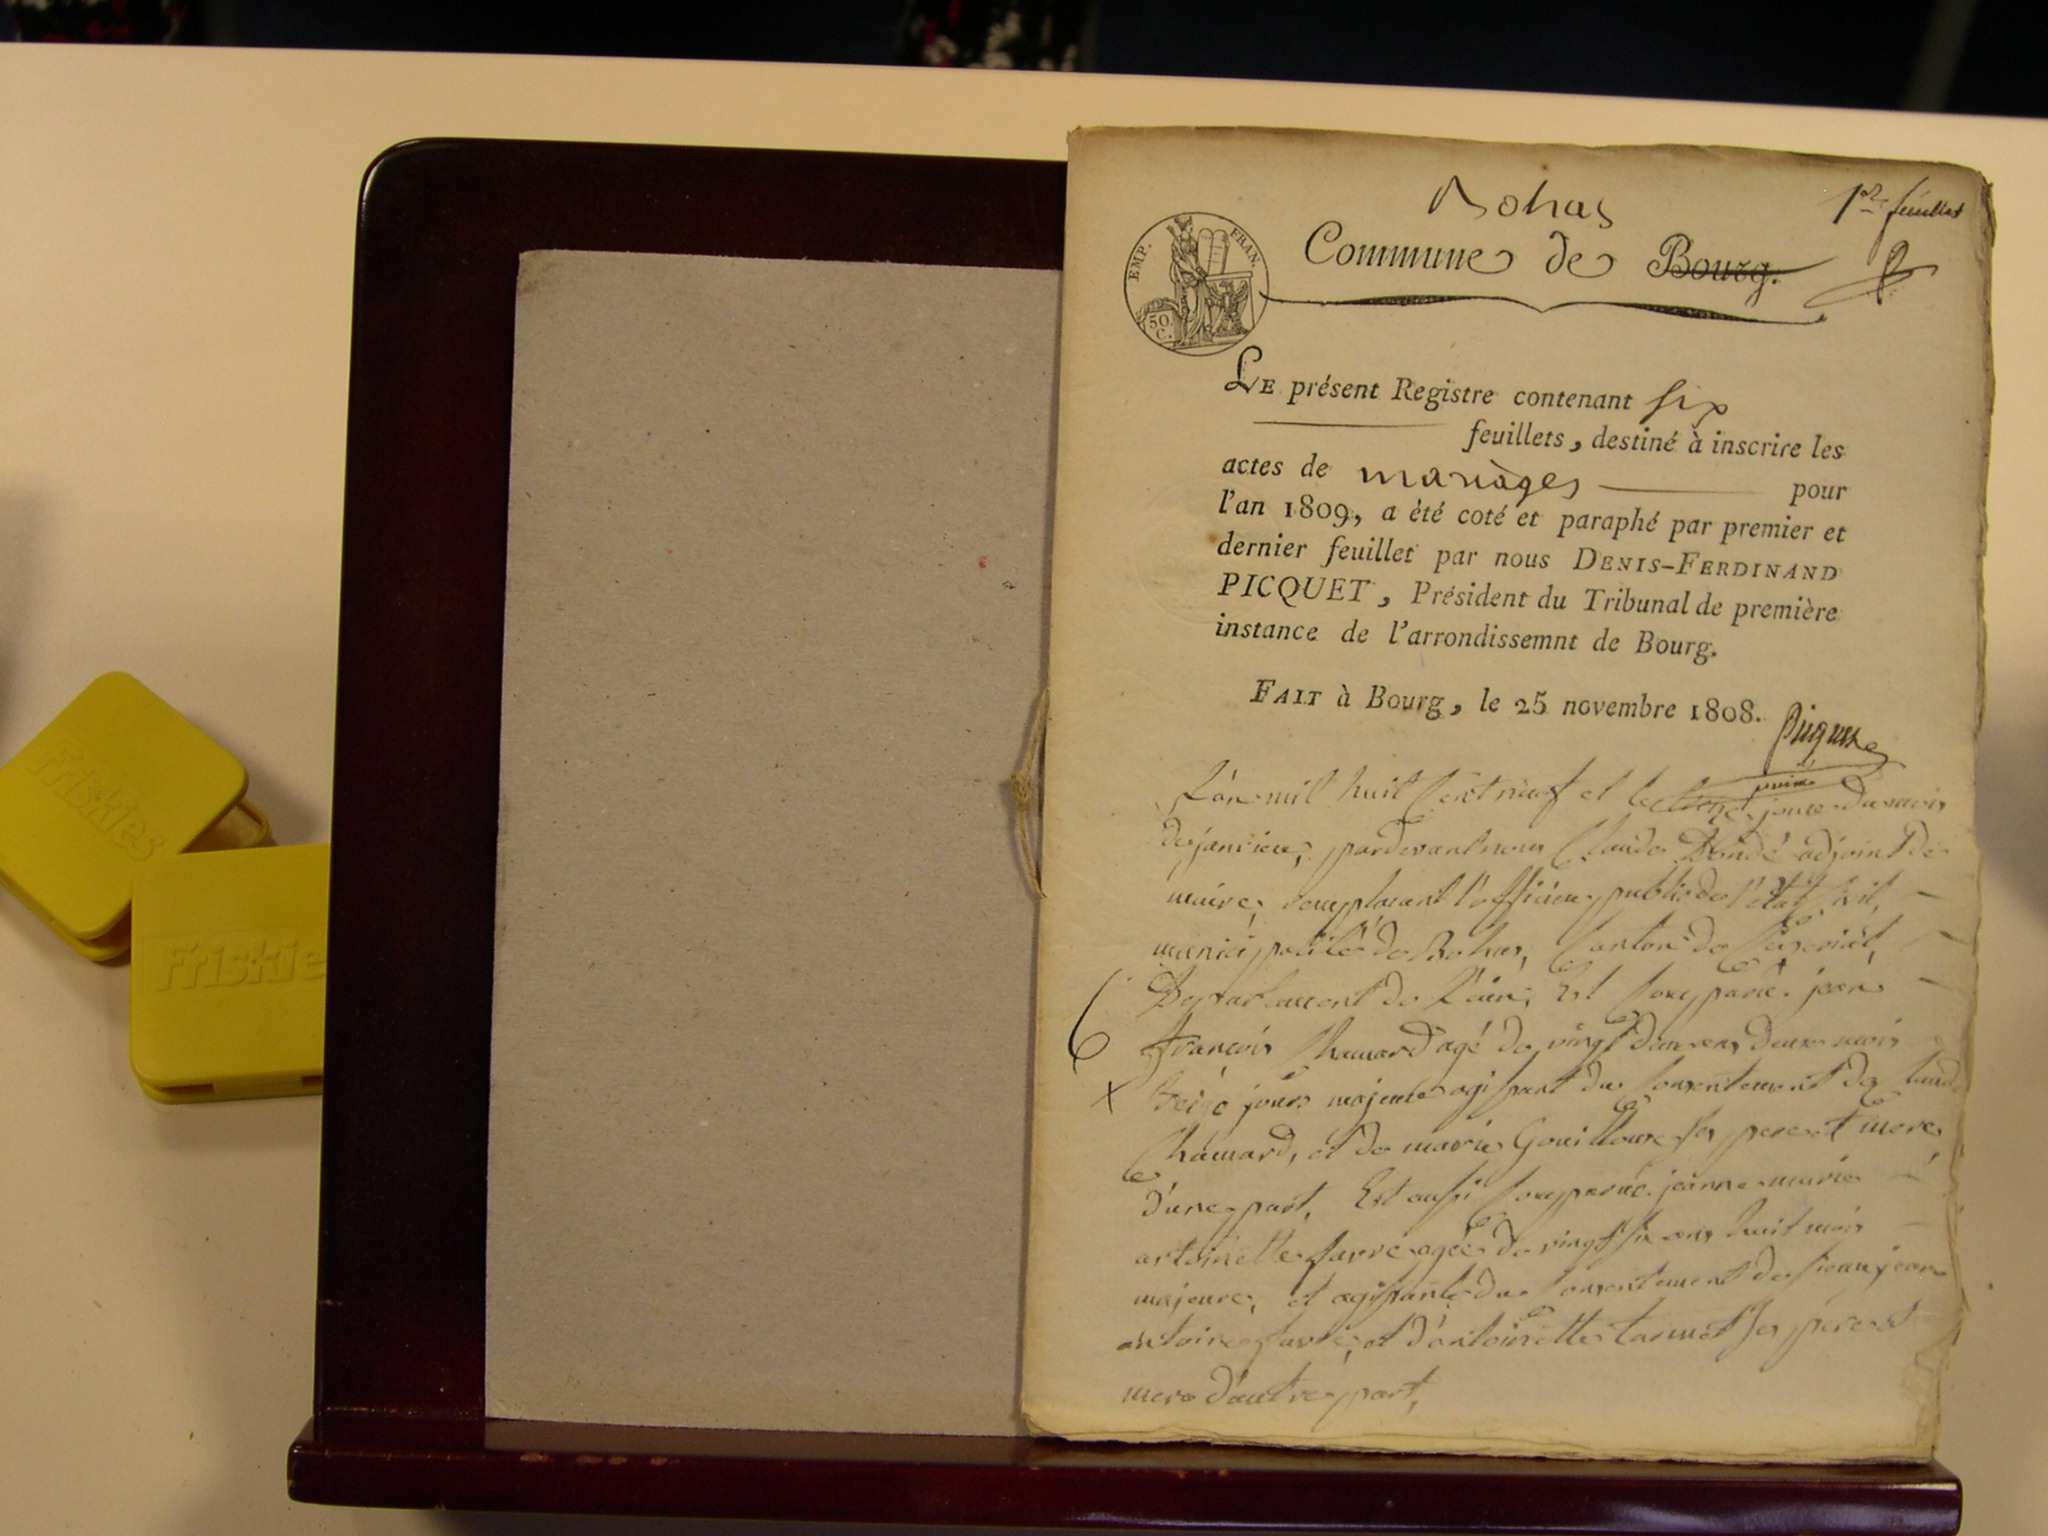 Bohas
1er feuillet
EMP. FRAN.
50 C.
Commune de Bourg.
LE présent Registre contenant six
feuillets, destiné à inscrire les
actes de mariages pour
l'an 1809, a été coté et paraphé par premier et
dernier feuillet par nous DENIS-FERDINAND
PICQUET, Président du Tribunal de première
instance de l'arrondissemnt de Bourg.
FAIT à Bourg, le 25 novembre 1808.
Picquet
L'an mil huit cent neuf et le jour du mois
de janvier, pardevant nous Claude adjoint de
maire, remplacant l'officier public de l'état civil,
municipalité de Bohas, canton de Ceyzeriat,
Departement de l'ain, Est comparu jean
6
françois Chanard agé de vingt deux ans deux mois
x
treize jours majeur agissant du consentement de Claude
Chanard, et de marie Gouilloux ses pere et mere
d'une part, Est aussi comparue jeanne marie
antoinette favre agée de vingt six ans huit mois
majeure, et agissante du consentement de sieur jean
antoine favre, et d'antoinette ses pere et
mere d'autre part,
Friskies
Friskie